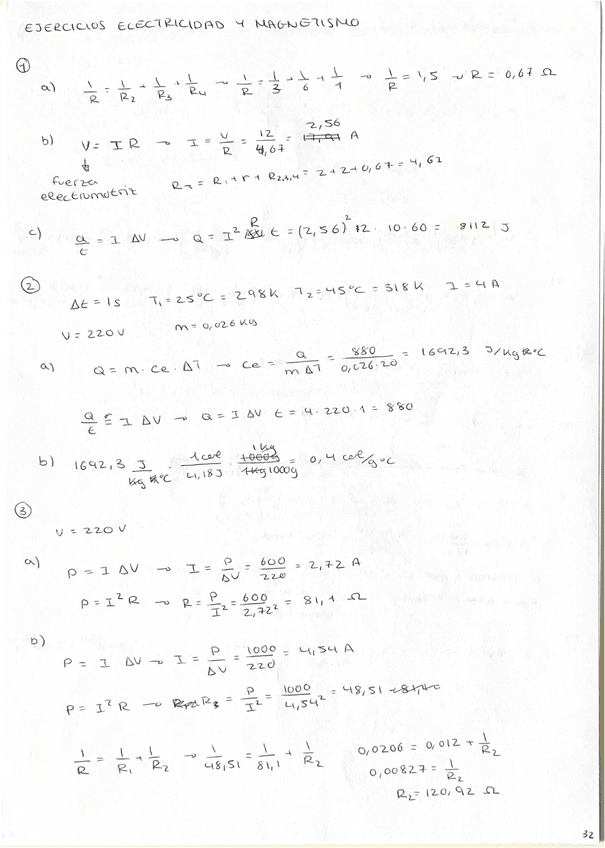 EJERCICIOS ELECTRICIDAD Y MAGNETISMO
①
a) 1/R = 1/R2 + 1/R3 + 1/R4 → 1/R = 1/3 + 1/6 + 1/1 → 1/R = 1,5 → R = 0,67 Ω
b) V = I R → I = V/R = 12/4,67 = 2,56 A
↓
fuerza electromotriz
RT = R1 + r + R2,3,4 = 2+2+0,67 = 4,67
c) Q/t = I ΔV → Q = I² R t = (2,56)² · 2 · 10·60 = 8112 J
②
Δt = 1s T1 = 25°C = 298K T2 = 45°C = 318K I = 4A
V = 220V m = 0,026 Kg
a) Q = m · ce · ΔT → ce = Q/(m ΔT) = 880/(0,026·20) = 1692,3 J/Kg°C
Q/t = I ΔV → Q = I ΔV t = 4·220·1 = 880
b) 1692,3 J/Kg°C · 1cal/4,18J · 1Kg/1000g = 0,4 cal/g°C
③
V = 220V
a) P = I ΔV → I = P/ΔV = 600/220 = 2,72 A
P = I² R → R = P/I² = 600/2,72² = 81,1 Ω
b)
P = I ΔV → I = P/ΔV = 1000/220 = 4,54 A
P = I² R → R = P/I² = 1000/4,54² = 48,51
1/R = 1/R1 + 1/R2 → 1/48,51 = 1/81,1 + 1/R2
0,0206 = 0,012 + 1/R2
0,00827 = 1/R2
R2 = 120,92 Ω
32